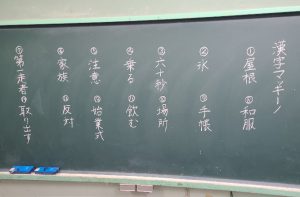 漢字マギーノ
①屋根
②氷
③六十秒
④乗る
⑤注意
⑥家族
⑦第一走者
⑧和服
⑨手帳
⑩場所
⑪飲む
⑫始業式
⑬反対
⑭取り出す